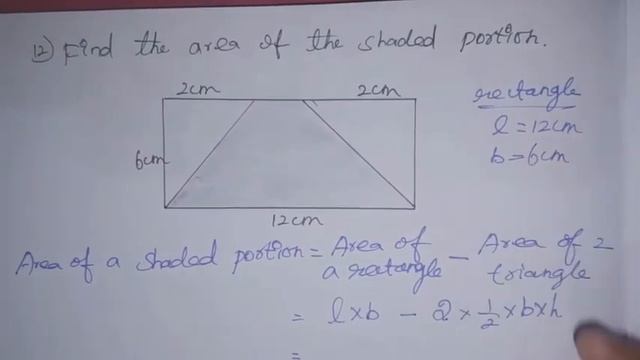 12) Find the area of the shaded portion.
2cm 2cm
rectangle
l = 12cm
b = 6cm
6cm
12cm
Area of a shaded portion = Area of a rectangle - Area of 2 triangle
= l x b - 2 x 1/2 x b x h
=